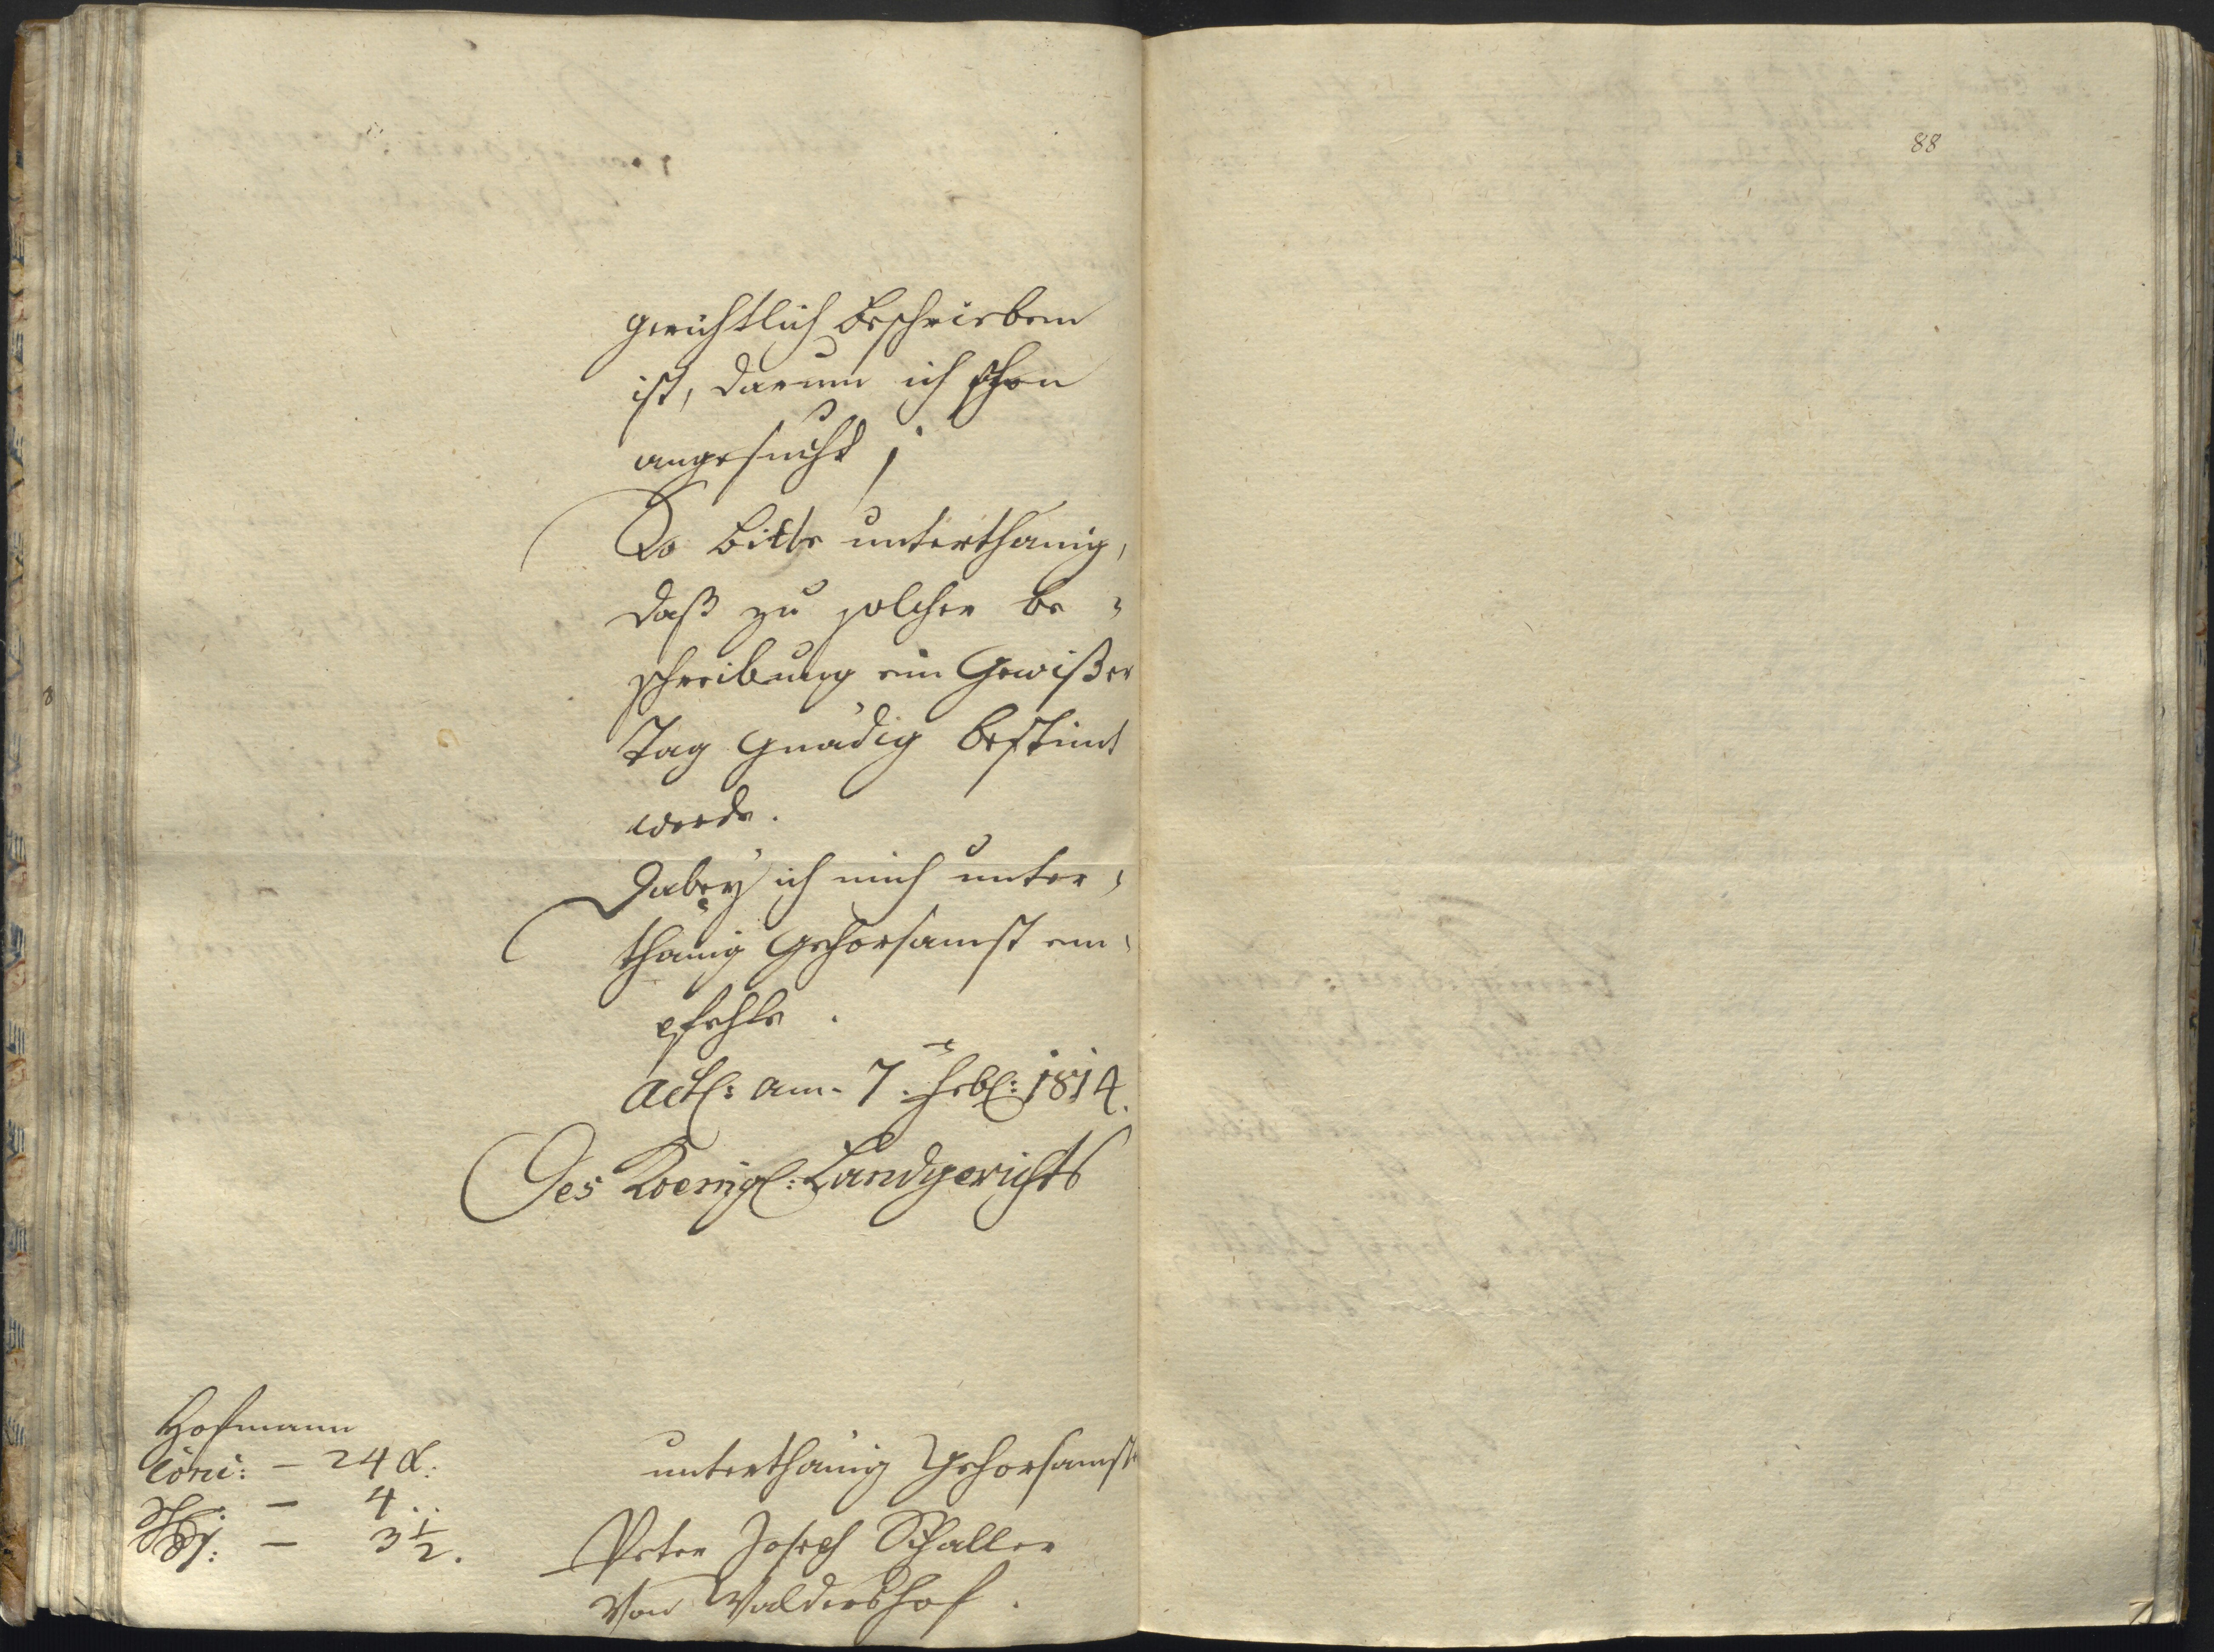 gerichtlich beschrieben
ist, darum ich schon
angesucht;
So bitte unterthänig,
daß zu solcher be-
schreibung ein Gewißer
Tag Gnädig bestimt
werde.
Dabey ich mich unter-
thänig Gehorsamst em-
pfehle.
Act: am 7. Feb: 1814.
Des Koenigl: Landgerichts
unterthänig Gehorsamst
Peter Joseph Schaller
von Waldershof.
Hofmann
Conc: - 24 d:
- 4..
- 3 1/2.
88